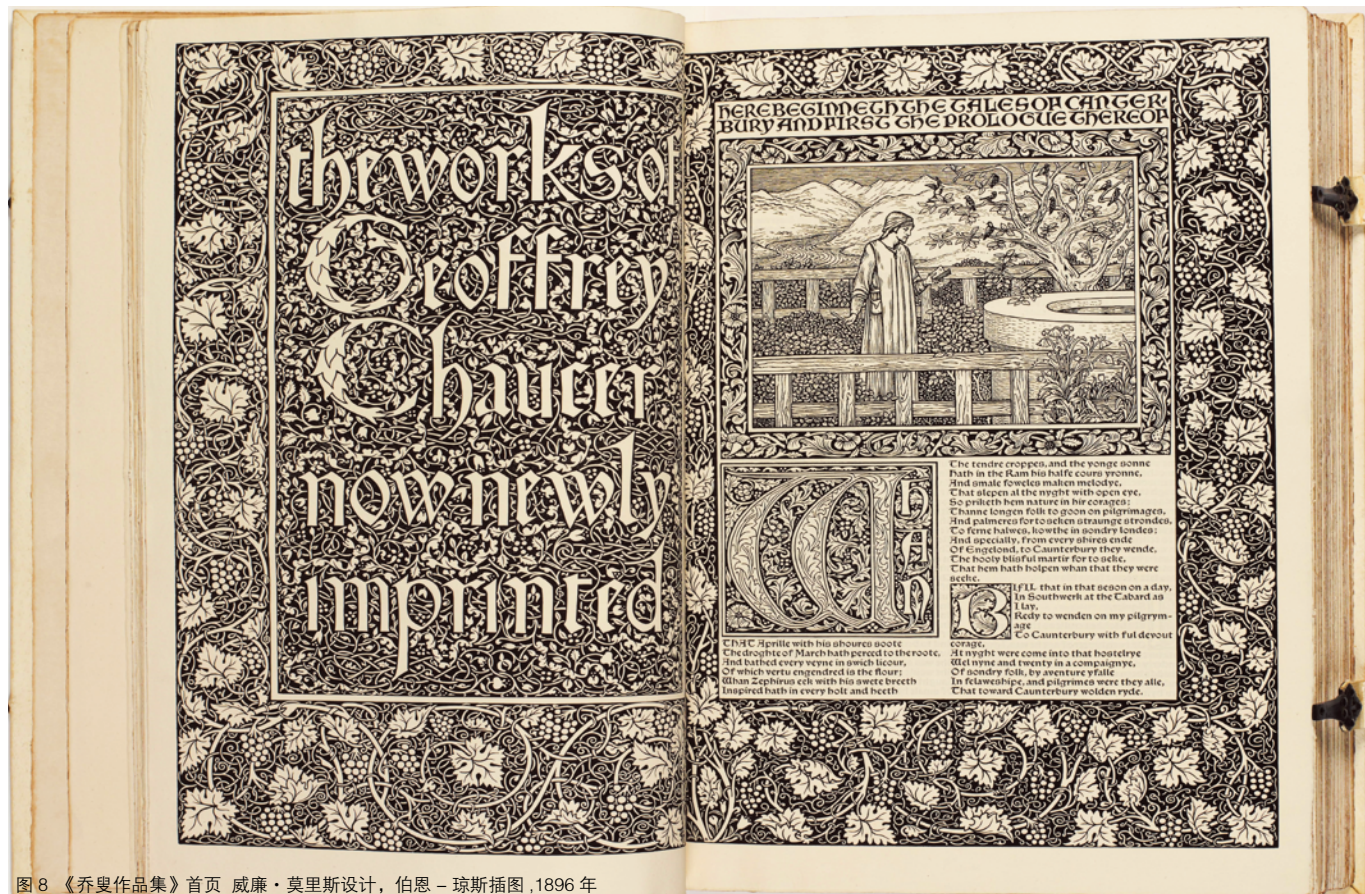 the works of
Geoffrey
Chaucer
now newly
imprinted
HERE BEGINNETH THE TALES OF CANTER-
BURY AND FIRST THE PROLOGUE THEREOF
WHAN
THAT Aprille with his shoures soote
The droghte of March hath perced to the roote,
And bathed every veyne in swich licour,
Of which vertu engendred is the flour;
Whan Zephirus eek with his swete breeth
Inspired hath in every holt and heeth
The tendre croppes, and the yonge sonne
Hath in the Ram his halfe cours yronne,
And smale foweles maken melodye,
That slepen al the nyght with open eye,
So priketh hem nature in hir corages;
Thanne longen folk to goon on pilgrimages,
And palmeres for to seken straunge strondes,
To ferne halwes, kowthe in sondry londes;
And specially, from every shires ende
Of Engelond, to Caunterbury they wende,
The hooly blisful martir for to seke,
That hem hath holpen whan that they were
seeke.
BIFIL that in that seson on a day,
In Southwerk at the Tabard as
I lay,
Redy to wenden on my pilgrym-
age
To Caunterbury with ful devout
corage,
At nyght were come into that hostelrye
Wel nyne and twenty in a compaignye,
Of sondry folk, by aventure yfalle
In felaweshipe, and pilgrimes were they alle,
That toward Caunterbury wolden ryde.
图 8 《乔叟作品集》首页 威廉·莫里斯设计，伯恩 – 琼斯插图 ,1896 年